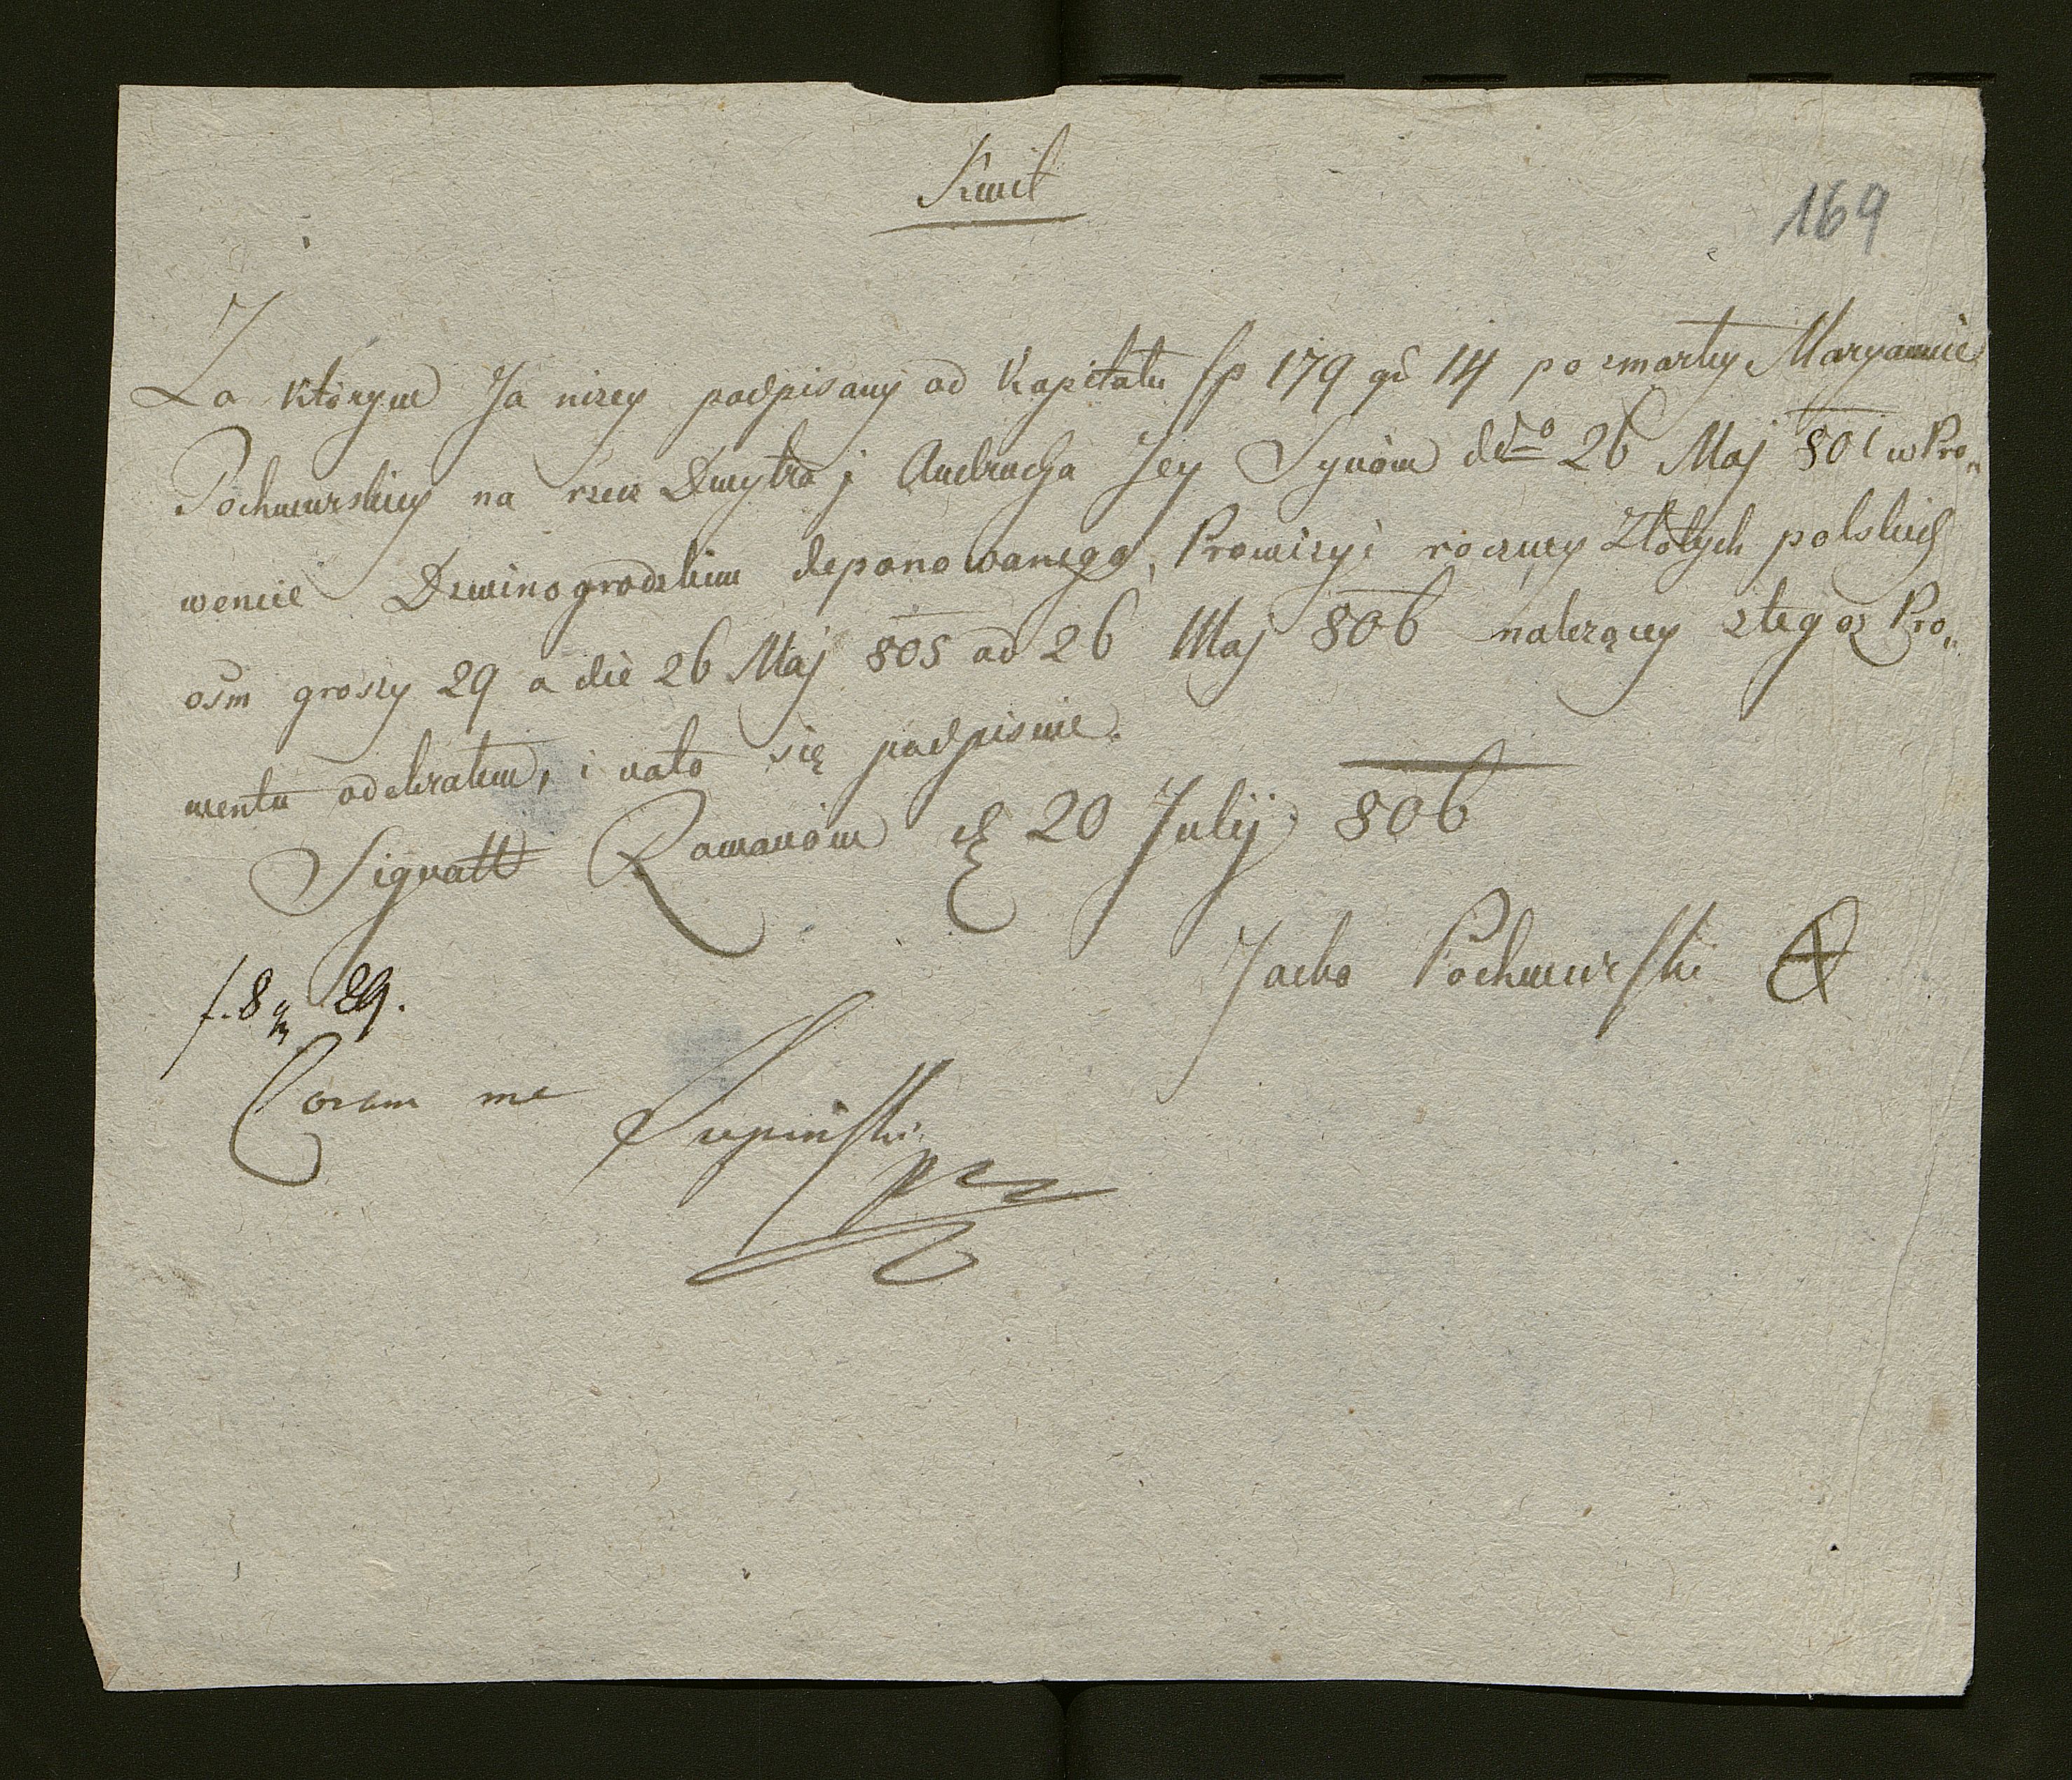 Kwit
169
Za którym Ja niżey podpisany od Kapitału fp 179 gr 14 po zmarłey Maryannie
Pochmurskiey na rzecz Dmytra j Andrucha Jey Synów dtto 26 Maj 801 w Pro„
wencie Dzwinogrodzkim deponowanego, Prowizyi roczney Złotych polskich
ośm groszy 29 a die 26 Maj 805 ad 26 Maj 806 należącey z tegoż Pro„
wentu odebrałem, i nato się podpisuie.
Signatt Romanów d 20 Julij 806
Jacko Pochmurski
f. 8 gr 29.
Coram me Lupiński